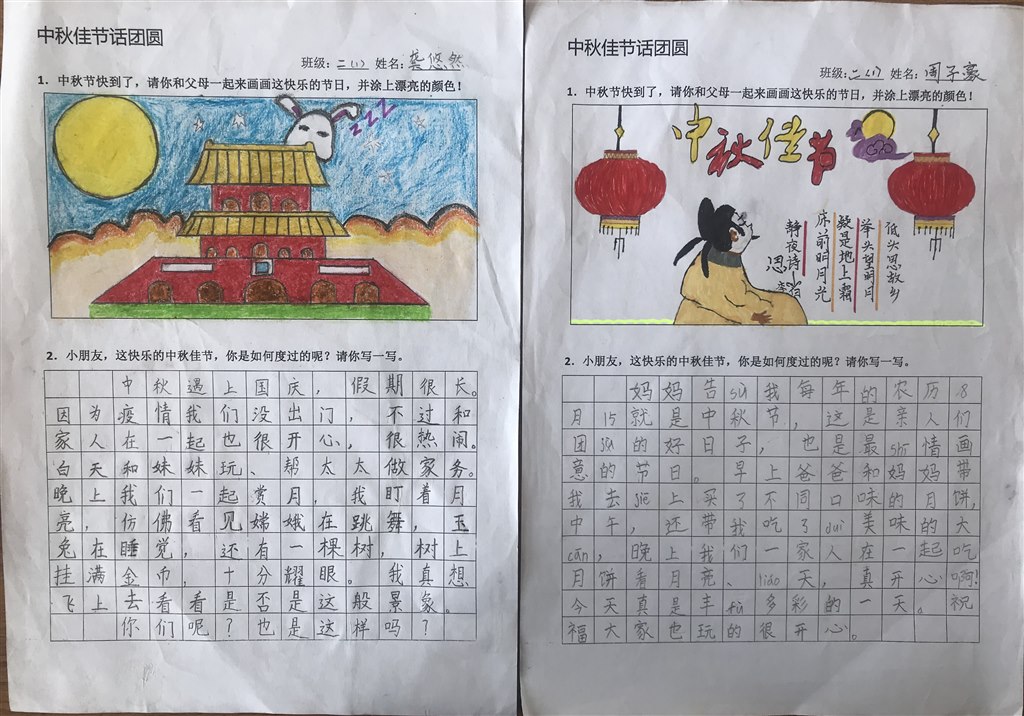 中秋佳节话团圆
班级：二（1） 姓名：龚悠然
1．中秋节快到了，请你和父母一起来画画这快乐的节日，并涂上漂亮的颜色！
zzz
2．小朋友，这快乐的中秋佳节，你是如何度过的呢？请你写一写。
中秋遇上国庆，假期很长。
因为疫情我们没出门，不过和
家人在一起也很开心，很热闹。
白天和妹妹玩、帮太太做家务。
晚上我们一起赏月，我盯着月
亮，仿佛看见嫦娥在跳舞，玉
兔在睡觉，还有一棵树，树上
挂满金币，十分耀眼。我真想
飞上去看看是否是这般景象。
你们呢？也是这样吗？
中秋佳节话团圆
班级：二（1） 姓名：周子豪
1．中秋节快到了，请你和父母一起来画画这快乐的节日，并涂上漂亮的颜色！
中秋佳节
静夜诗
思
李白
床前明月光
疑是地上霜
举头望明月
低头思故乡
2．小朋友，这快乐的中秋佳节，你是如何度过的呢？请你写一写。
妈妈告sù我每年的农历8
月15就是中秋节，这是亲人们
团jù的好日子，也是最shī情画
意的节日。早上爸爸和妈妈带
我去jiē上买了不同口味的月饼，
中午，还带我吃了duì美味的大
cān，晚上我们一家人在一起吃
月饼看月亮、liáo天，真开心啊！
今天真是丰fù多彩的一天。祝
福大家也玩的很开心。